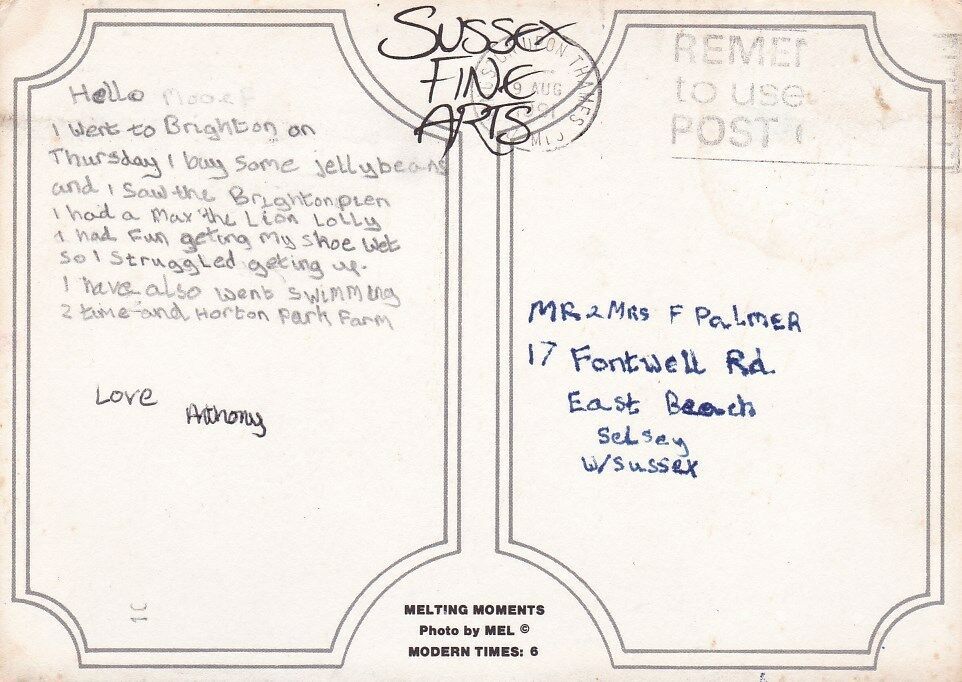 SUSSEX
FINE
ARTS
UPON THAMES
9 AUG
REME
to use
POST
Hello
I went to Brighton on
Thursday I buy some jellybeans
and I saw the Brighton pien
I had a Max the Lion Lolly
I had Fun geting my shoe wet
so I struggled geting up.
I have also went swimming
2 time and Horton Park Farm
Love
Anthony
MR & MRS F PALMER
17 Fontwell Rd.
East Beach
Selsey
W/SUSSEX
MELTING MOMENTS
Photo by MEL ©
MODERN TIMES: 6